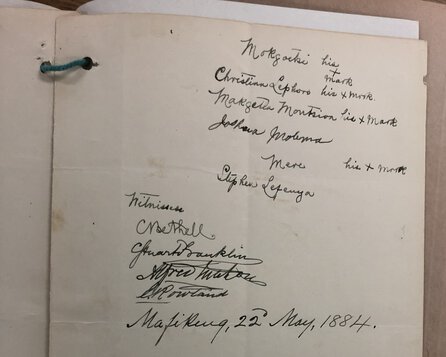 Mokgatsi his
+
mark
Christina Lephoro his x mark.
Makgetla Montsiva his x mark
Joshua Molema
Mere his x mark
Stephen Lefenya
Witnesses
C Bethell
Stuart Franklin
Alfred
C Rowland
Mafikeng, 22d May, 1884.